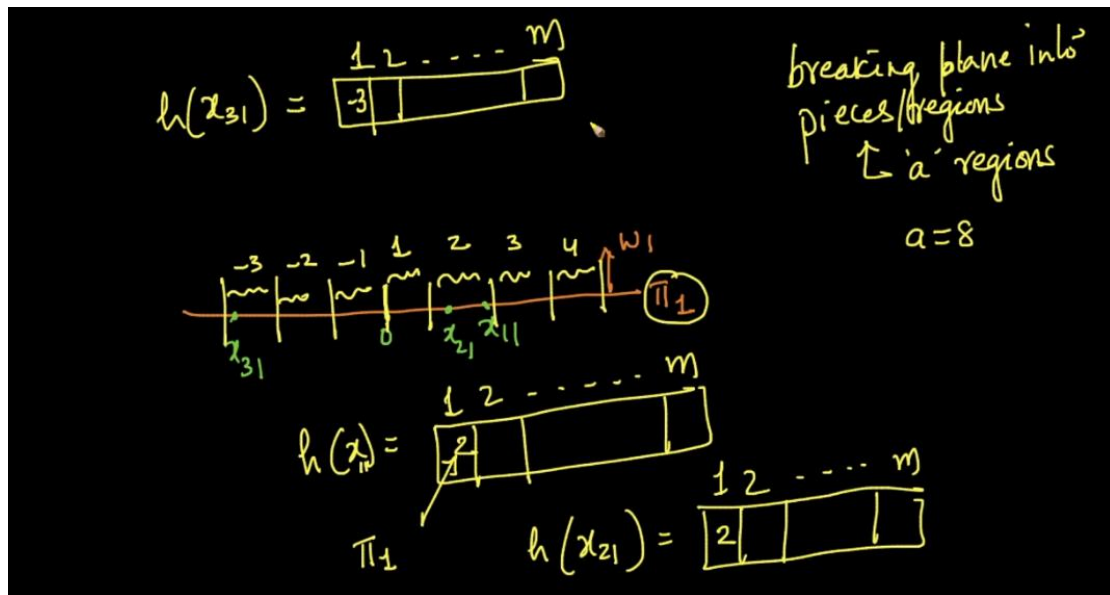 1 2 .... m
h(x31) = -3
breaking plane into
pieces/regions
↳ 'a' regions
a=8
-3 -2 -1 1 2 3 4 W1
π1
x31 0 x21 x11
1 2 ...... m
h(x11) = 2
π1
1 2 .... m
h(x21) = 2